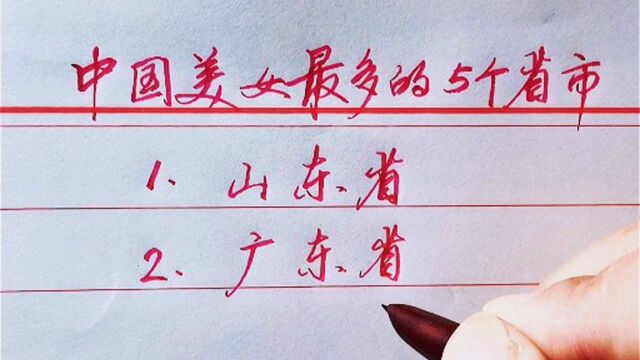 中国美女最多的5个省市
1、山东省
2、广东省